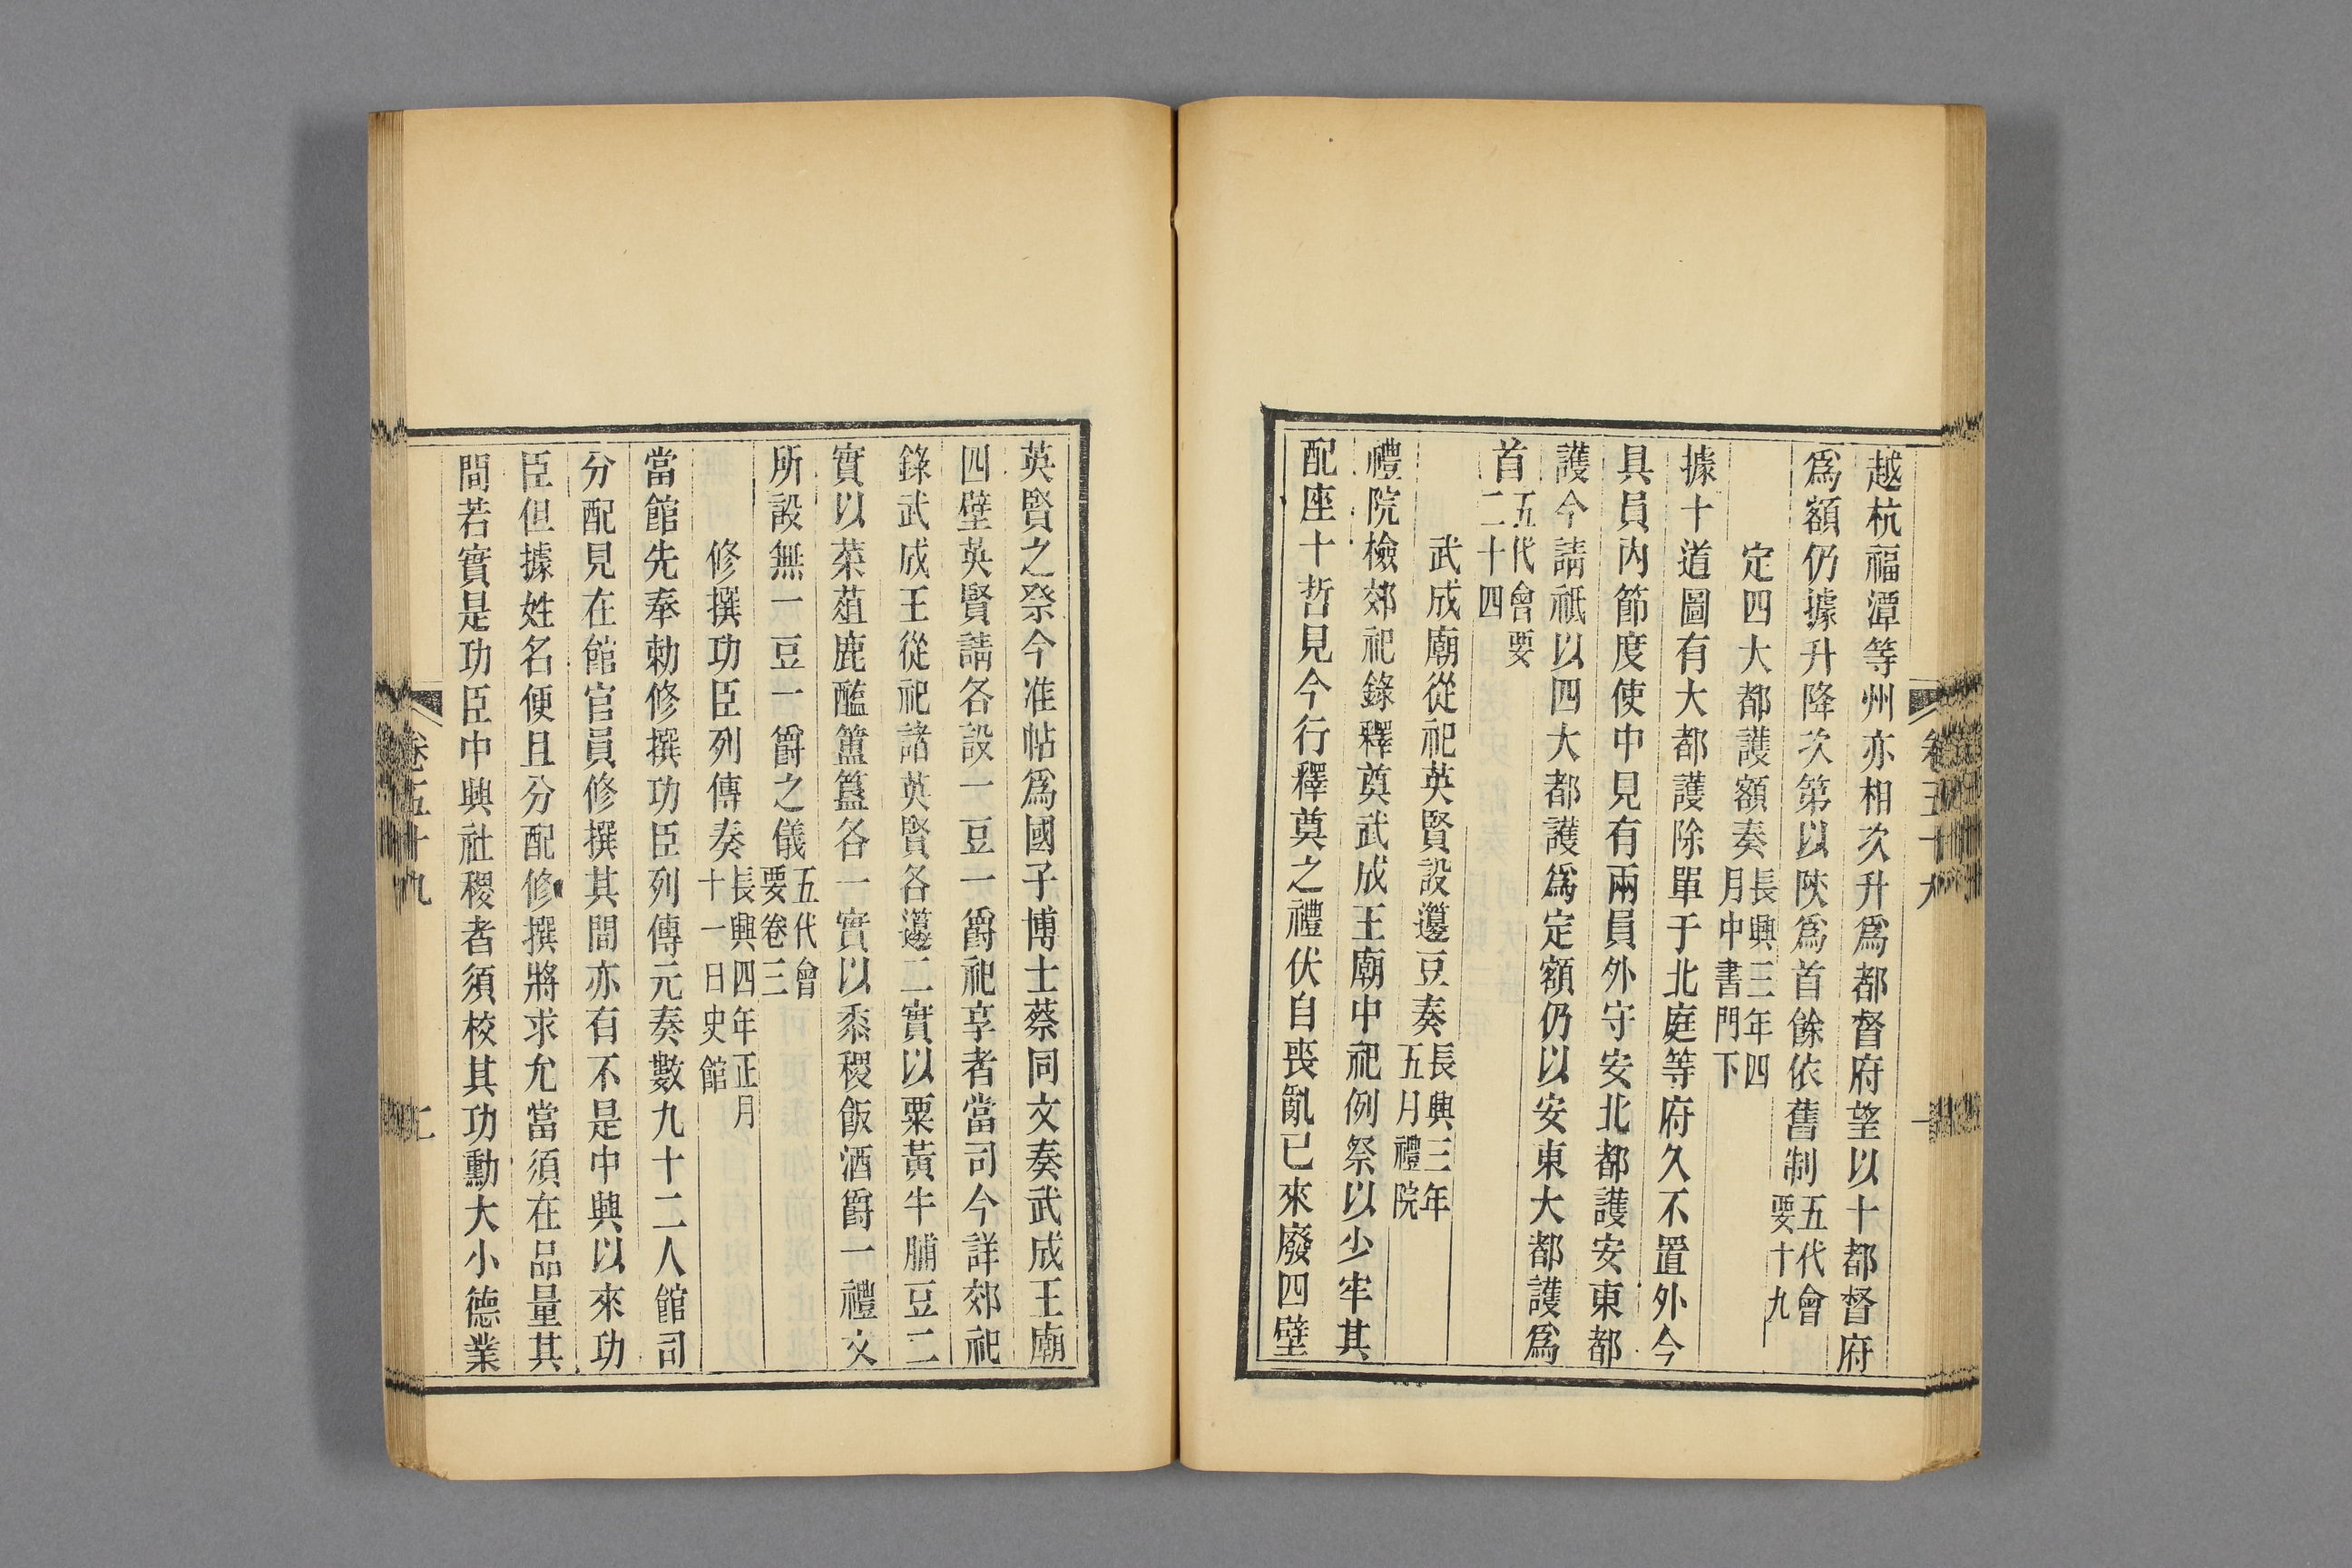 越杭福潭等州亦相次升爲都督府望以十都督府
爲額仍據升降次第以陜爲首餘依舊制五代會要十九
定四大都護額奏長興三年四月中書門下
據十道圖有大都護除單于北庭等府久不置外今
具員內節度使中見有兩員外守安北都護安東都
護今請祇以四大都護爲定額仍以安東大都護爲
首五代會要二十四
武成廟從祀英賢設籩豆奏長興三年五月禮院
禮院檢郊祀錄釋奠武成王廟中祀例祭以少牢其
配座十哲見今行釋奠之禮伏自喪亂已來廢四壁
英賢之祭今准帖爲國子博士蔡同文奏武成王廟
四壁英賢請各設一豆一爵祀享者當司今詳郊祀
錄武成王從祀諸英賢各籩二實以栗黃牛脯豆二
實以菜葅鹿醢簠簋各一實以黍稷飯酒爵一禮文
所設無一豆一爵之儀五代會要卷三
修撰功臣列傳奏長興四年正月十一日史館
當館先奉勅修撰功臣列傳元奏數九十二人館司
分配見在館官員修撰其間亦有不是中興以來功
臣但據姓名便且分配修撰將求允當須在品量其
間若實是功臣中興社稷者須校其功勳大小德業
卷五十九